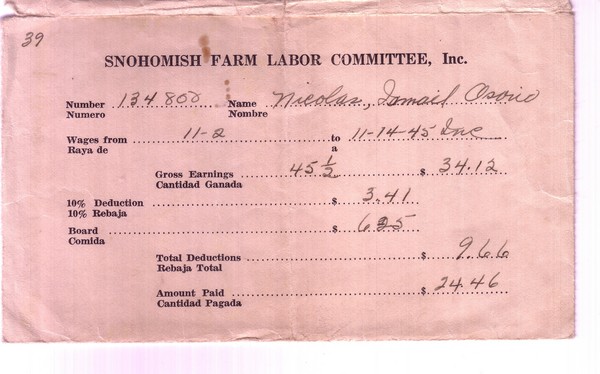 39
SNOHOMISH FARM LABOR COMMITTEE, Inc.
Number 134 808 Name Nicolas, Ismail Osorio
Numero Nombre
Wages from 11-2 to 11-14-45 Inc
Raya de a
Gross Earnings 45 1/2 $ 34.12
Cantidad Ganada
10% Deduction $ 3.41
10% Rebaja
Board $ 6.25
Comida
Total Deductions $ 9.66
Rebaja Total
Amount Paid $ 24.46
Cantidad Pagada